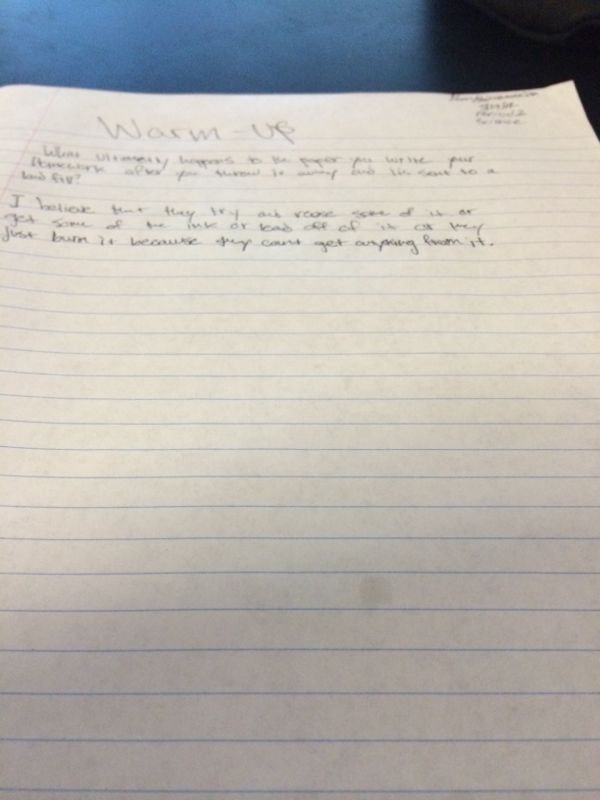 Period 2
Science
Warm-up
What ultimately happens to the paper you write your
homework after you throw it away and its sent to a
land fill?
I believe that they try and reuse some of it or
get some of the ink or lead off of it or they
just burn it because they cant get anything from it.